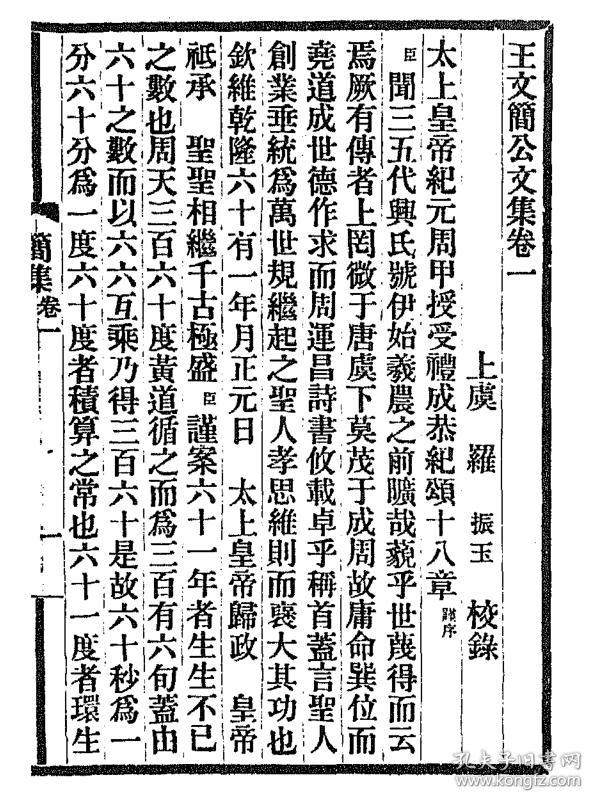 王文簡公文集卷一
上虞 羅 振玉 校錄
太上皇帝紀元周甲授受禮成恭紀頌十八章 謹序
臣聞三五代興氏號伊始羲農之前曠哉藐乎世蔑得而云
焉厥有傳者上罔微于唐虞下莫茂于成周故庸命巽位而
堯道成世德作求而周運昌詩書攸載卓乎稱首蓋言聖人
創業垂統為萬世規繼起之聖人孝思維則而襃大其功也
欽維乾隆六十有一年月正元日 太上皇帝歸政 皇帝
祗承 聖聖相繼千古極盛 臣謹案六十一年者生生不已
之數也周天三百六十度黃道循之而為三百有六旬蓋由
六十之數而以六六互乘乃得三百六十是故六十秒為一
分六十分為一度六十度者積算之常也六十一度者環生
簡集 卷一
一
孔夫子旧书网
www.kongfz.com